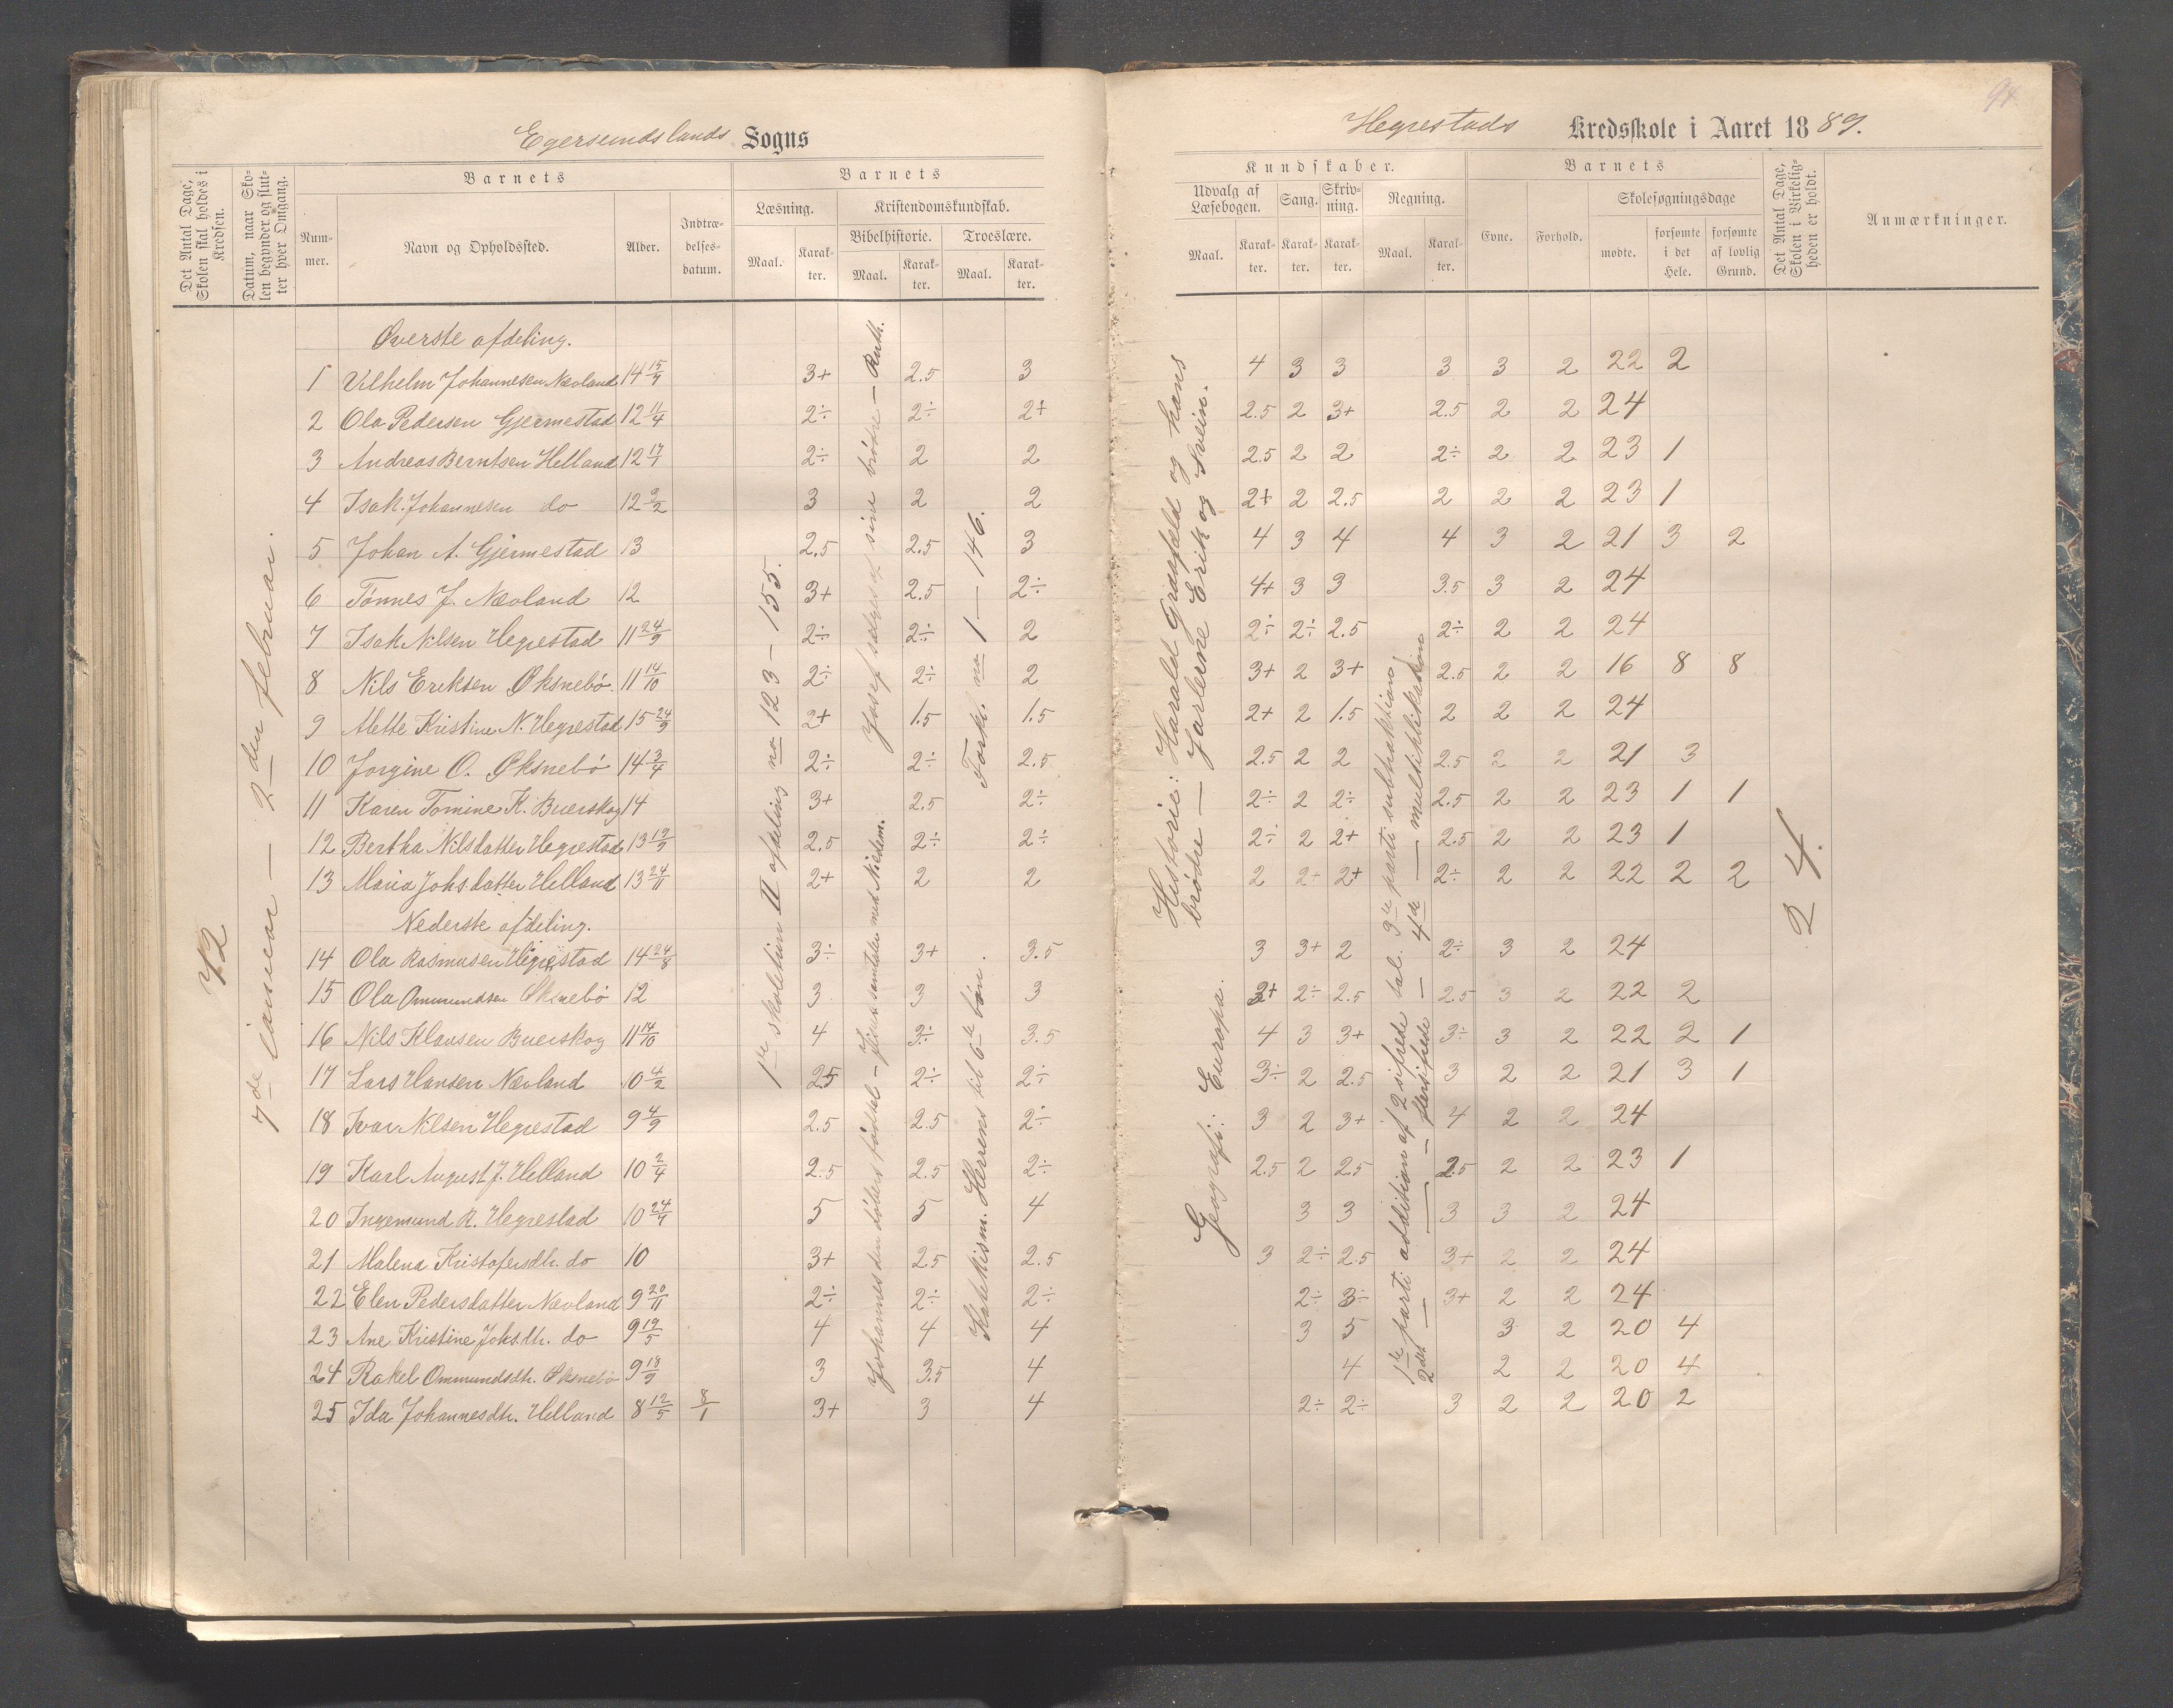 Egersundslands Sogns
Det Antal Dage, Skolen skal holdes i Kredsen.
Datum, naar Skolen begynder og slutter hver Omgang.
Barnets
Nummer.
Navn og Opholdssted.
Alder.
Indtrædelsesdatum.
Barnets
Læsning.
Maal.
Karakter.
Kristendomskundskab.
Bibelhistorie.
Maal.
Karakter.
Troeslære.
Maal.
Karakter.
72
7de januar — 2den februar.
1ste skoletrin II afdeling no 123 – 155.
Josef sælges af sine brødre — Ruth.
Johannes den døbers fødsel – Jesu samtalen med Nikodem.
Forkl. no 1 — 146.
Katekism. Herrens til 6te bøn.
Øverste afdeling.
1 Vilhelm Johannesen Nevland 14 15/9 3+ 2.5 3
2 Ola Pedersen Gjermestad 12 11/4 2÷ 2÷ 2+
3 Andreas Berntsen Helland 12 17/1 2÷ 2 2
4 Isak Johannesen do 12 2/2 3 2 2
5 Johan A. Gjermestad 13 2.5 2.5 3
6 Tønnes J. Nevland 12 3+ 2.5 2÷
7 Isak Nilsen Hegrestad 11 24/9 2÷ 2÷ 2
8 Nils Eriksen Øksnebø. 11 14/10 2÷ 2÷ 2
9 Mette Kristine N. Hegrestad 15 24/9 2+ 1.5 1.5
10 Jorgine O. Øksnebø 14 3/4 2÷ 2÷ 2.5
11 Karen Tomine K. Buerskog 14 3+ 2.5 2÷
12 Bertha Nilsdatter Hegrestad 13 19/9 2.5 2÷ 2÷
13 Maria Johs.datter Helland 13 24/11 2+ 2 2
Nederste afdeling.
14 Ola Rasmusen Hegrestad 14 24/8 3÷ 3+ 3.5
15 Ola Ommundsen Øksnebø 12 3 3 3
16 Nils Klausen Buerskog 11 14/10 4 3÷ 3.5
17 Lars Hansen Nevland 10 4/2 2.5 2÷ 2÷
18 Ivar Nilsen Hegrestad 9 4/9 2.5 2.5 2÷
19 Karl August J. Helland 10 2/4 2.5 2.5 2÷
20 Ingemund R. Hegrestad 10 24/7 5 5 4
21 Malena Kristofersdtr. do 10 3+ 2.5 2.5
22 Elen Pedersdatter Nevland 9 20/11 2÷ 2÷ 2÷
23 Ane Kristine Johs.dtr. do 9 19/5 4 4 4
24 Rakel Ommundsdtr. Øksnebø 9 18/9 3 3.5 4
25 Ida Johannesdtr. Helland 8 12/5 8/1 3+ 3 4
94
Hegrestads Kredsskole i Aaret 1889.
Kundskaber.
Udvalg af Læsebogen.
Maal.
Karakter.
Sang.
Karakter.
Skrivning.
Karakter.
Regning.
Maal.
Karakter.
Barnets
Evne.
Forhold.
Skolesøgningsdage
mødte.
forsømte i det Hele.
forsømte af lovlig Grund.
Det Antal Dage, Skolen i Virkeligheden er holdt.
Anmærkninger.
Historie: Harald Graafeld og hans
brødre — Jarlerne Erik og Svein.
Geografi: Europa.
1ste parti addition af 2 sifrede tal. 3die parti subtraktion
2det — — — flersifrede — 4de — multiplikation
24.
4 3 3 3 3 2 22 2
2.5 2 3+ 2.5 2 2 24
2.5 2 2 2÷ 2 2 23 1
2+ 2 2.5 2 2 2 23 1
4 3 4 4 3 2 21 3 2
4+ 3 3 3.5 3 2 24
2÷ 2÷ 2.5 2÷ 2 2 24
3+ 2 3+ 2.5 2 2 16 8 8
2+ 2 1.5 2 2 2 24
2.5 2 2 2.5 2 2 21 3
2÷ 2 2÷ 2.5 2 2 23 1 1
2÷ 2 2+ 2.5 2 2 23 1
2 2+ 2+ 2÷ 2 2 22 2 2
3 3+ 2 2÷ 3 2 24
3+ 2÷ 2.5 2.5 3 2 22 2
4 3 3+ 3÷ 3 2 22 2 1
3÷ 2 2.5 3 2 2 21 3 1
3 2 3+ 4 2 2 24
2.5 2 2.5 2.5 2 2 23 1
3 3 3 3 2 24
3 2÷ 2.5 3+ 2 2 24
2÷ 3÷ 3+ 2 2 24
3 5 3 2 20 4
4 2 2 20 4
2÷ 2÷ 3 2 2 20 2